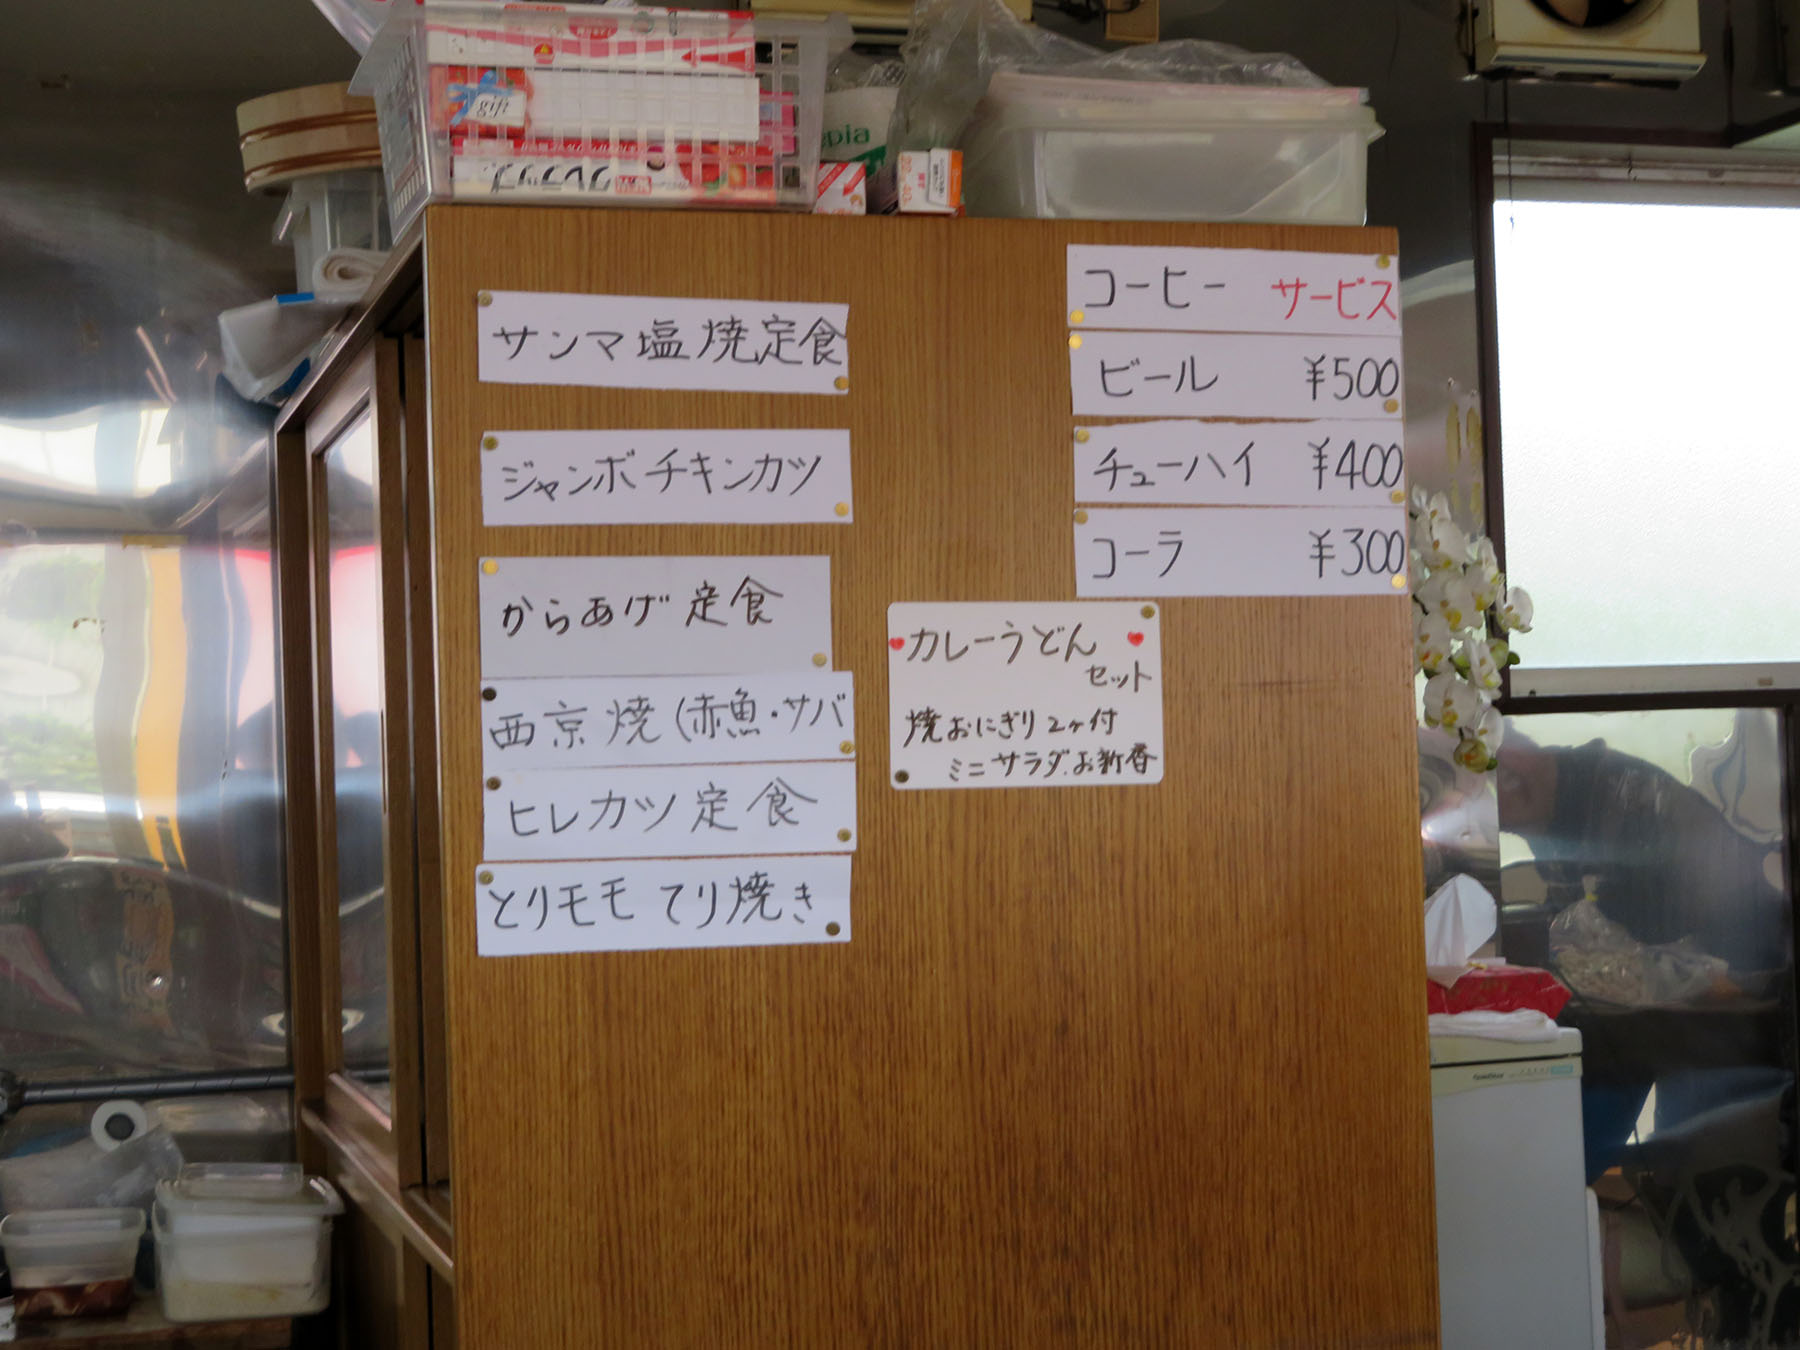 gift
クレラップ
サンマ塩焼定食
ジャンボチキンカツ
からあげ定食
西京焼(赤魚・サバ
ヒレカツ定食
とりモモてり焼き
コーヒー サービス
ビール ¥500
チューハイ ¥400
コーラ ¥300
カレーうどん
セット
焼おにぎり2ヶ付
ミニサラダ.お新香